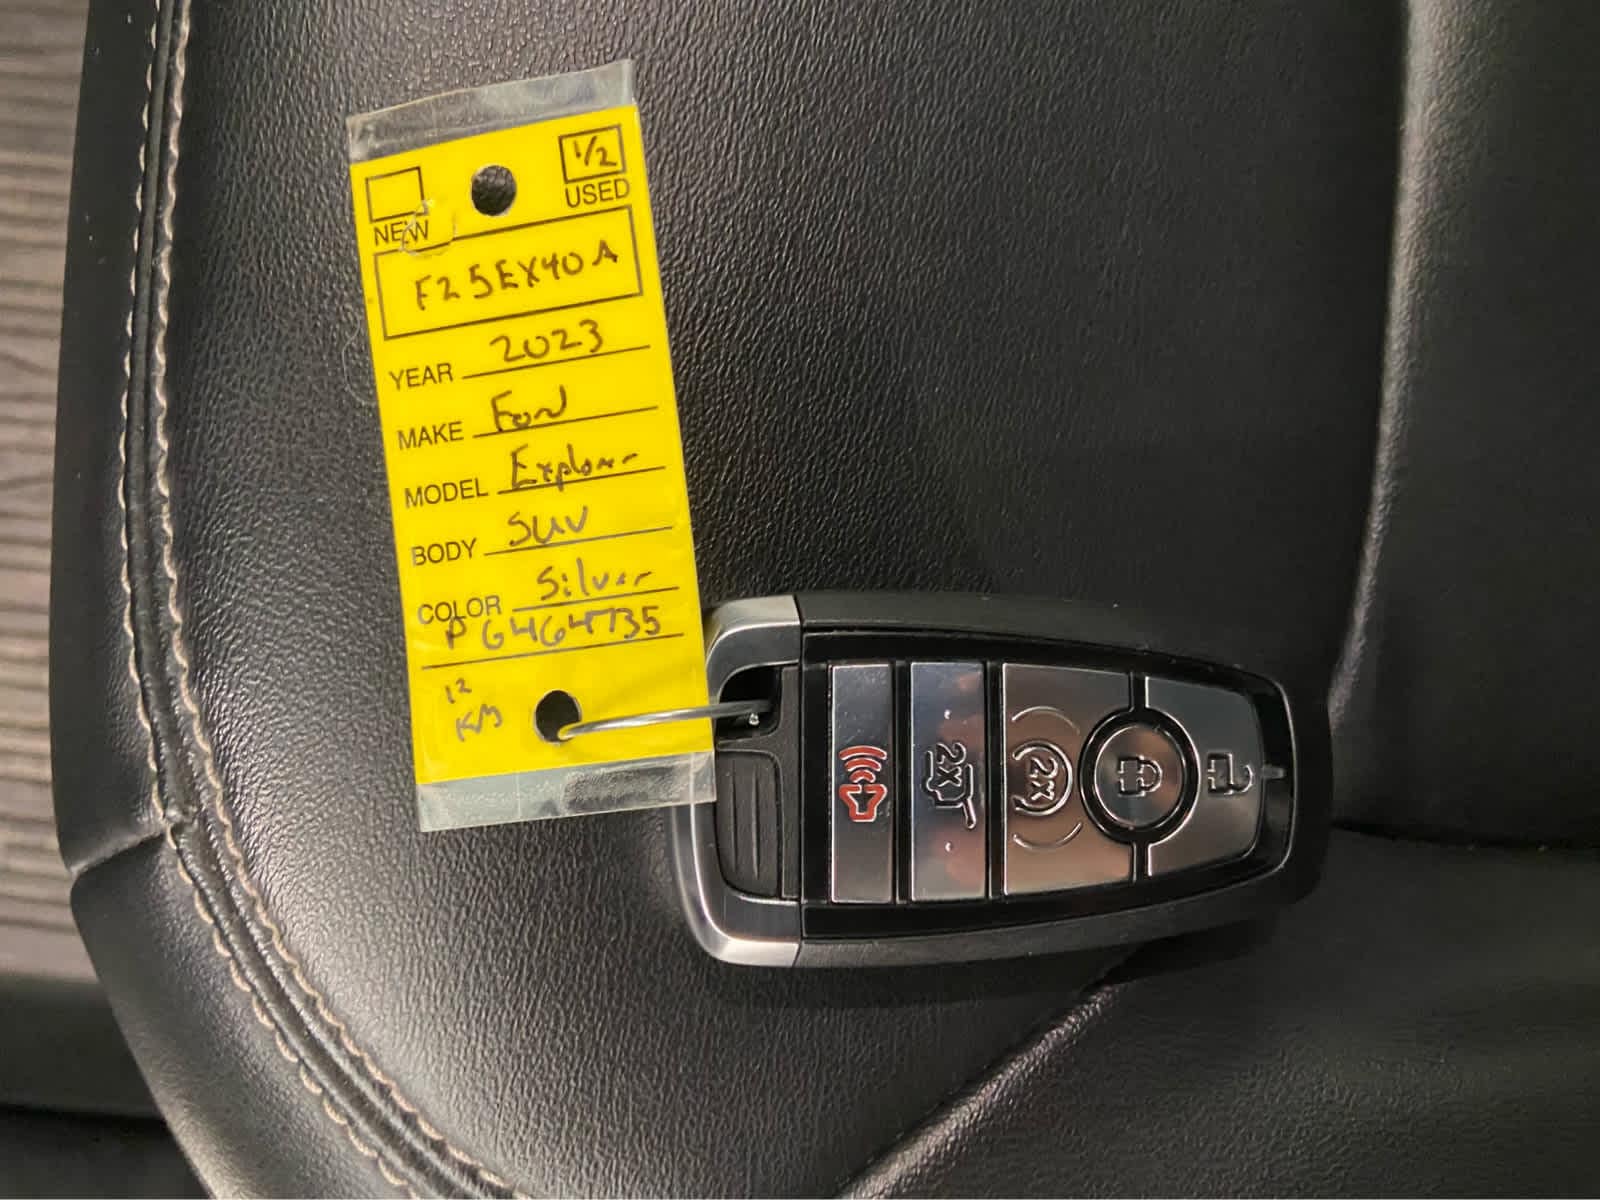 1/2
NEW USED
F25EX40A
YEAR 2023
MAKE Ford
MODEL Explorer
BODY SUV
COLOR Silver
PG464735
12
KM
2x
2x